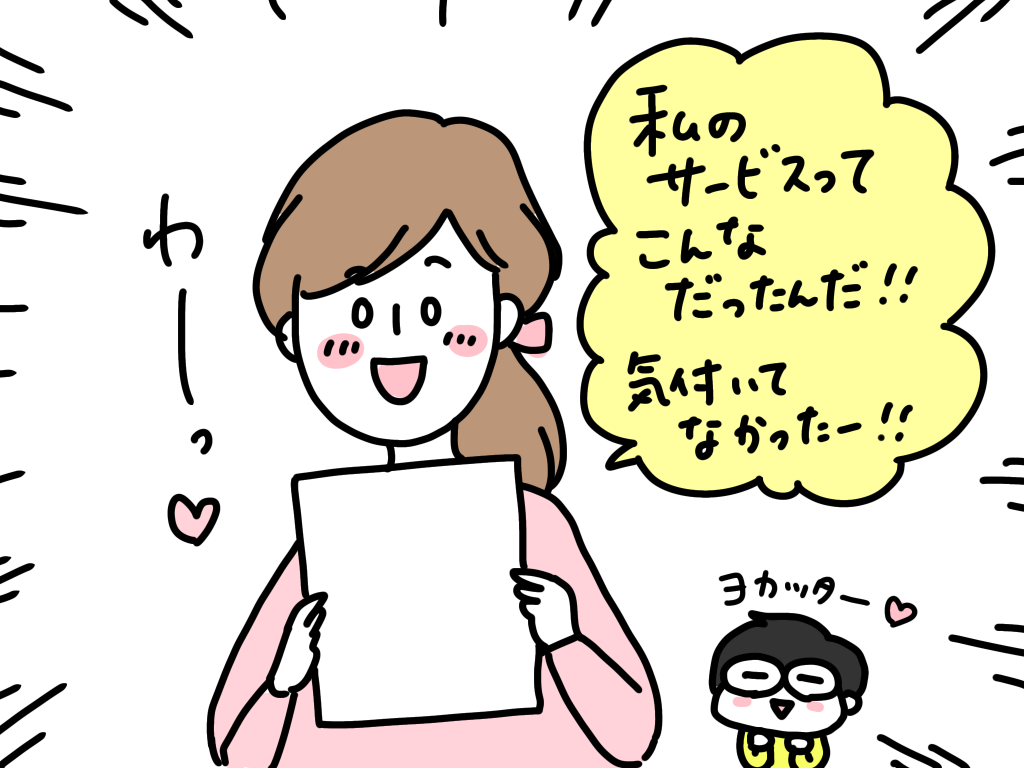 私の
サービスって
こんな
だったんだ!!
気付いて
なかったー!!
わーっ
ヨカッター